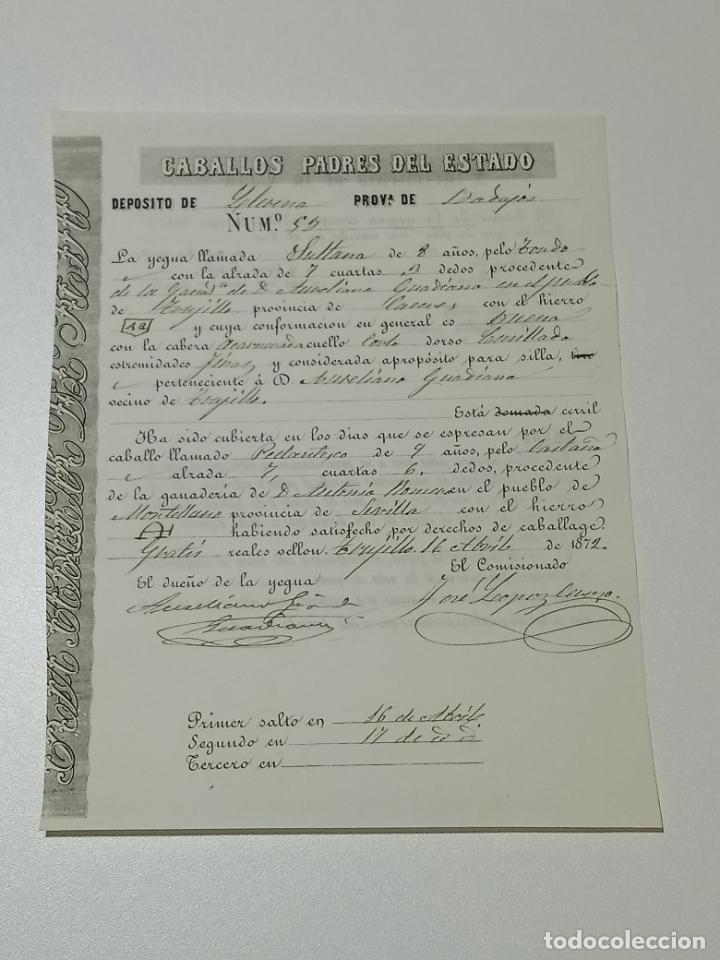 CABALLOS PADRES DEL ESTADO
DEPOSITO DE Llerena PROVᴬ DE Badajoz
NUMº 53
La yegua llamada Sultana de 8 años, pelo Tordo
con la alzada de 7 cuartas 3 dedos procedente
de la Ganadª de D. Aureliano Guadiana en el pueblo
de Trujillo provincia de Caceres con el hierro
y cuya conformacion en general es Buena
con la cabeza Acarnerada cuello Corto dorso Ensillado
estremidades Finas y considerada apropósito para silla, tiro
perteneciente á D. Aureliano Guadiana
vecino de Trujillo.
Está domada cerril
Ha sido cubierta en los dias que se espresan por el
caballo llamado Pedantesco de 9 años, pelo Castaño
alzada 7, cuartas 6. dedos, procedente
de la ganadería de D. Antonio Romero en el pueblo de
Montellano provincia de Sevilla con el hierro
habiendo satisfecho por derechos de caballage.
Gratis reales vellon. Trujillo 16 Abril de 1872.
El dueño de la yegua El Comisionado
Aureliano
Guadiana José Lopez
Primer salto en 16 de Abril
Segundo en 17 de id id
Tercero en
todocoleccion
todocoleccion.net